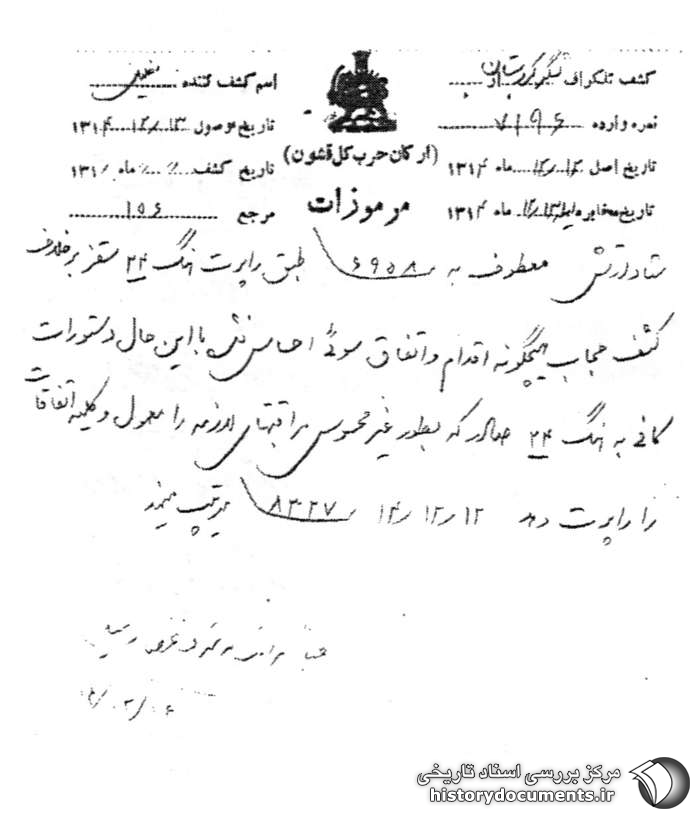 کشف تلگراف لشگر کردستان
نمره وارده ۷۱۹۶
تاریخ اصل ۱۲/۱۲ ماه ۱۳۱۴
تاریخ مخابره ۱۲/۱۳ ماه ۱۳۱۴
(ارکان حرب کل قشون)
مرموزات
اسم کشف کننده
تاریخ وصول ۱۲/۱۳ ۱۳۱۴
تاریخ کشف ماه ۱۳۱
مرجع ۱۵۶
ستاد ارتش معطوف به ۶۹۵۸ طبق راپرت هنگ ۲۴ سقز بر خلاف
کشف حجاب هیچگونه اقدام و اتفاق سوئی احساس نشده با این حال دستورات
کافی به هنگ ۲۴ صادر که بطور غیر محسوس مراقبتهای لازمه را معمول و کلیه اتفاقات
را راپرت دهد ۱۴/۱۲/۱۲ ۸۳۳۷ سرتیپ
مرکز بررسی اسناد تاریخی
historydocuments.ir